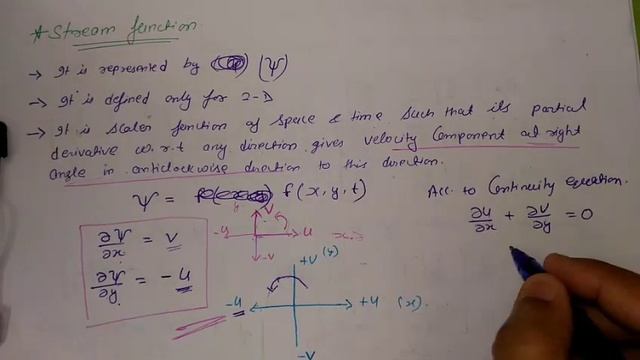 * Stream function
→ It is represented by (ψ)
→ It is defined only for 2-D
→ It is scalar function of space & time such that its partial
derivative w.r.t any direction gives velocity component at right
angle in anticlockwise direction to this direction.
ψ = f(x, y, t)
Acc. to Continuity equation.
∂u/∂x + ∂v/∂y = 0
∂ψ/∂x = v
∂ψ/∂y = -u
y +v
-u +u
-v
+v (y)
-u +u (x).
-v